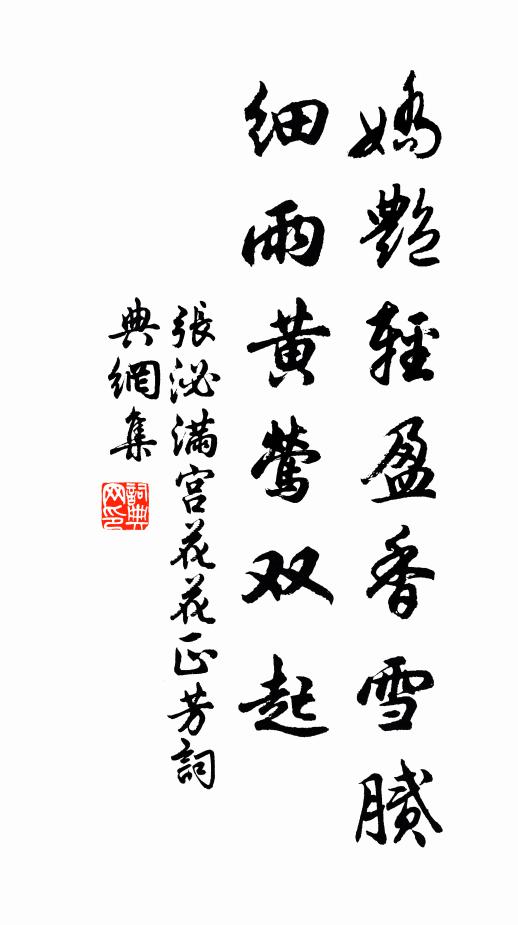 嬌艷輕盈香雪膩
細雨黄鶯双起
張泌满宫花花正芳詞
典網集
詞典网印